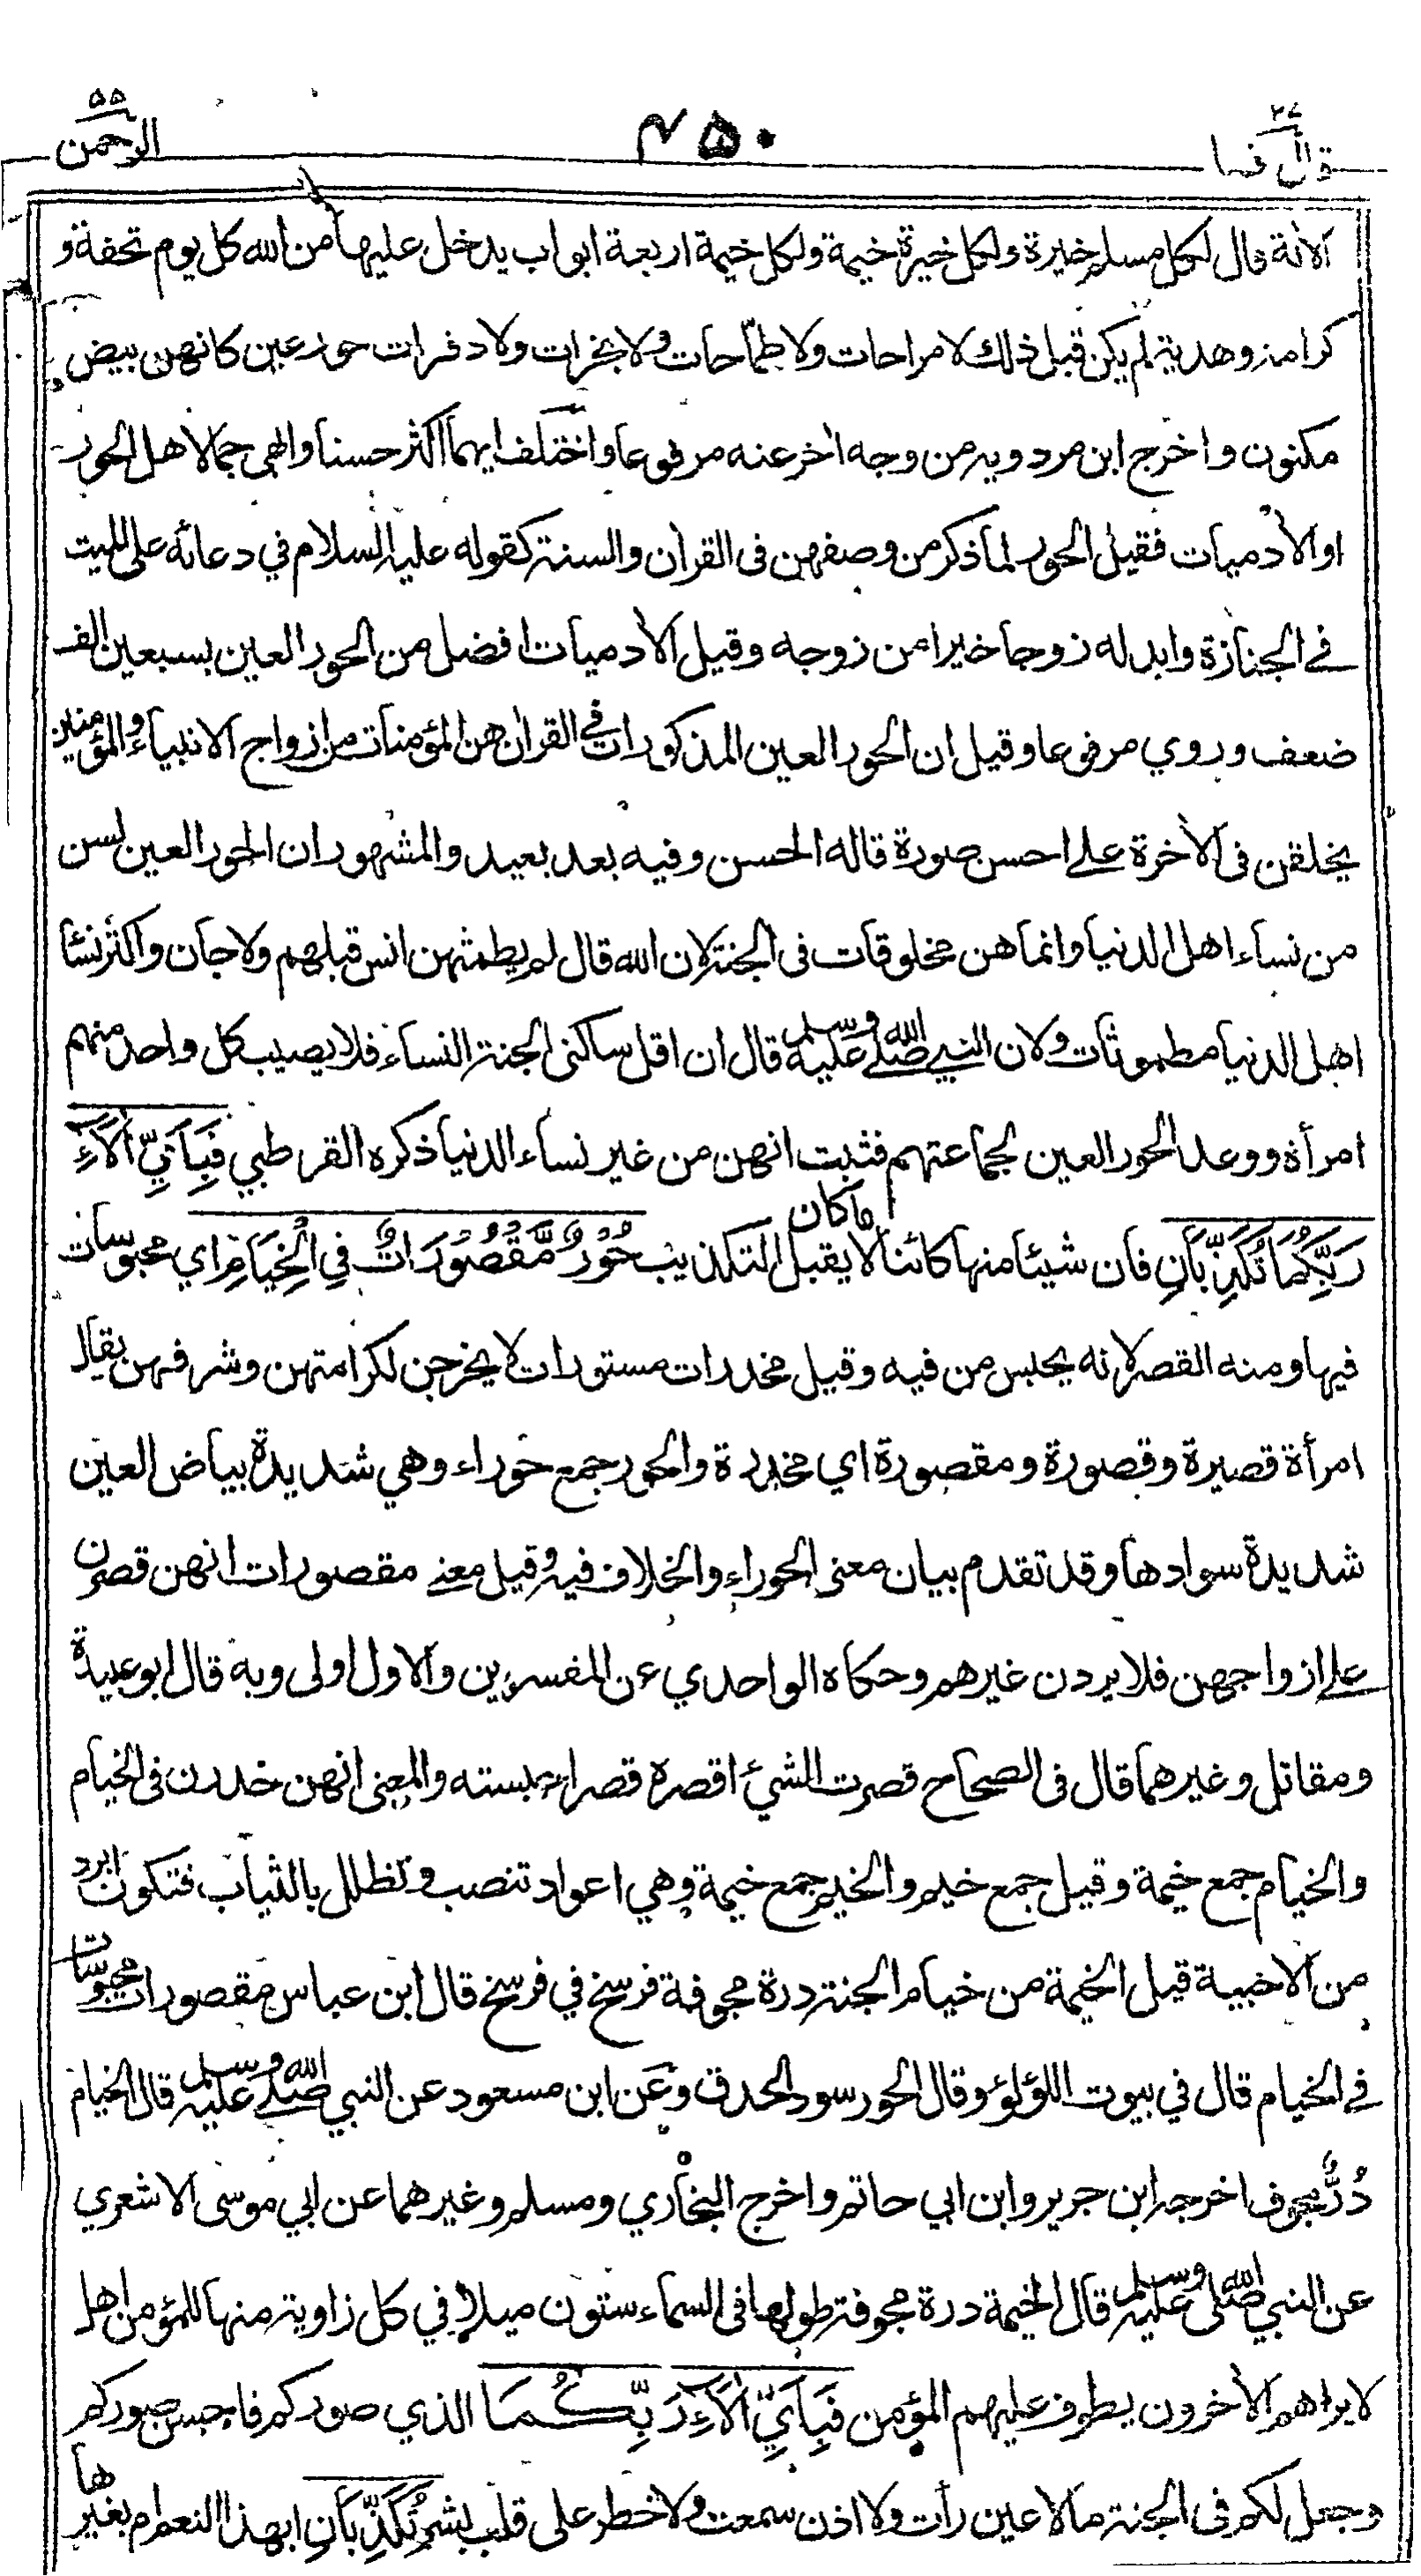 قال فما ٢٧
٤٥٠
الرحمن ٥٥
الآية قال لكل مسلم خيرة ولكل خيرة خيمة ولكل خيمة اربعة ابواب يدخل عليها من الله كل يوم تحفة و
كرامة وهدية لم يكن قبل ذلك لا مراحات ولا طماحات ولا بخرات ولا دفرات حور عين كانهن بيض
مكنون واخرج ابن مردويه من وجه اخر عنه مرفوعا واختلف ايهما اكثر حسنا وابهى جمالا هل الحور
او الآدميات فقيل الحور لما ذكر من وصفهن فى القرآن والسنة كقوله عليه السلام في دعائه على الميت
في الجنازة وابدله زوجا خيرا من زوجه وقيل الآدميات افضل من الحور العين بسبعين الف
ضعف وروي مرفوعا وقيل ان الحور العين المذكورات في القرآن هن المؤمنات من ازواج الانبياء والمؤمنين
يخلقن فى الآخرة على احسن صورة قاله الحسن وفيه بعد بعيد والمشهور ان الحور العين لسن
من نساء اهل الدنيا وانما هن مخلوقات فى الجنة لان الله قال لم يطمثهن انس قبلهم ولا جان واكثر نساء
اهل الدنيا مطموثات ولان النبي صلى الله عليه وسلم قال ان اقل ساكنى الجنة النساء فلا يصيب كل واحد منهم
امرأة ووعد الحور العين لجماعتهم فثبت انهن من غير نساء الدنيا ذكره القرطبي فَبِأَيِّ آلَآءِ
رَبِّكُمَا تُكَذِّبَانِ فان شيئا منها كائنا ما كان لا يقبل التكذيب حُوْرٌ مَّقْصُوْرَاتٌ فِي الْخِيَامِ اي محبوسات
فيها ومنه القصر لانه يحبس من فيه وقيل مخدرات مستورات لا يخرجن لكرامتهن وشرفهن يقال
امرأة قصيرة وقصورة ومقصورة اي مخدرة والحور جمع حوراء وهي شديدة بياض العين
شديدة سوادها وقد تقدم بيان معنى الحوراء والخلاف فيه وقيل معنى مقصورات انهن قصرن
على ازواجهن فلا يردن غيرهم وحكاه الواحدي عن المفسرين والاول اولى وبه قال ابو عبيدة
ومقاتل وغيرهما قال فى الصحاح قصرت الشيء اقصره قصرا حبسته والمعنى انهن خدرن فى الخيام
والخيام جمع خيمة وقيل جمع خيم والخيم جمع خيمة وهي اعواد تنصب وتظلل بالثياب فتكون ابرد
من الاخبية قيل الخيمة من خيام الجنة درة مجوفة فرسخ في فرسخ قال ابن عباس مقصورات محبوسات
في الخيام قال في بيوت اللؤلؤ وقال الحور سود الحدق وعن ابن مسعود عن النبي صلى الله عليه وسلم قال الخيام
دُرٌّ مجوف اخرجه ابن جرير وابن ابي حاتم واخرج البخاري ومسلم وغيرهما عن ابي موسى الاشعري
عن النبي صلى الله عليه وسلم قال الخيمة درة مجوفة طولها فى السماء ستون ميلا في كل زاوية منها للمؤمن اهل
لا يراهم الآخرون يطوف عليهم المؤمن فَبِأَيِّ آلَآءِ رَبِّكُمَا الذي صوركم فاحسن صوركم
وجعل لكم فى الجنة ما لا عين رأت ولا اذن سمعت ولا خطر على قلب بشر تُكَذِّبَانِ ابهذا النعم ام بغيرها